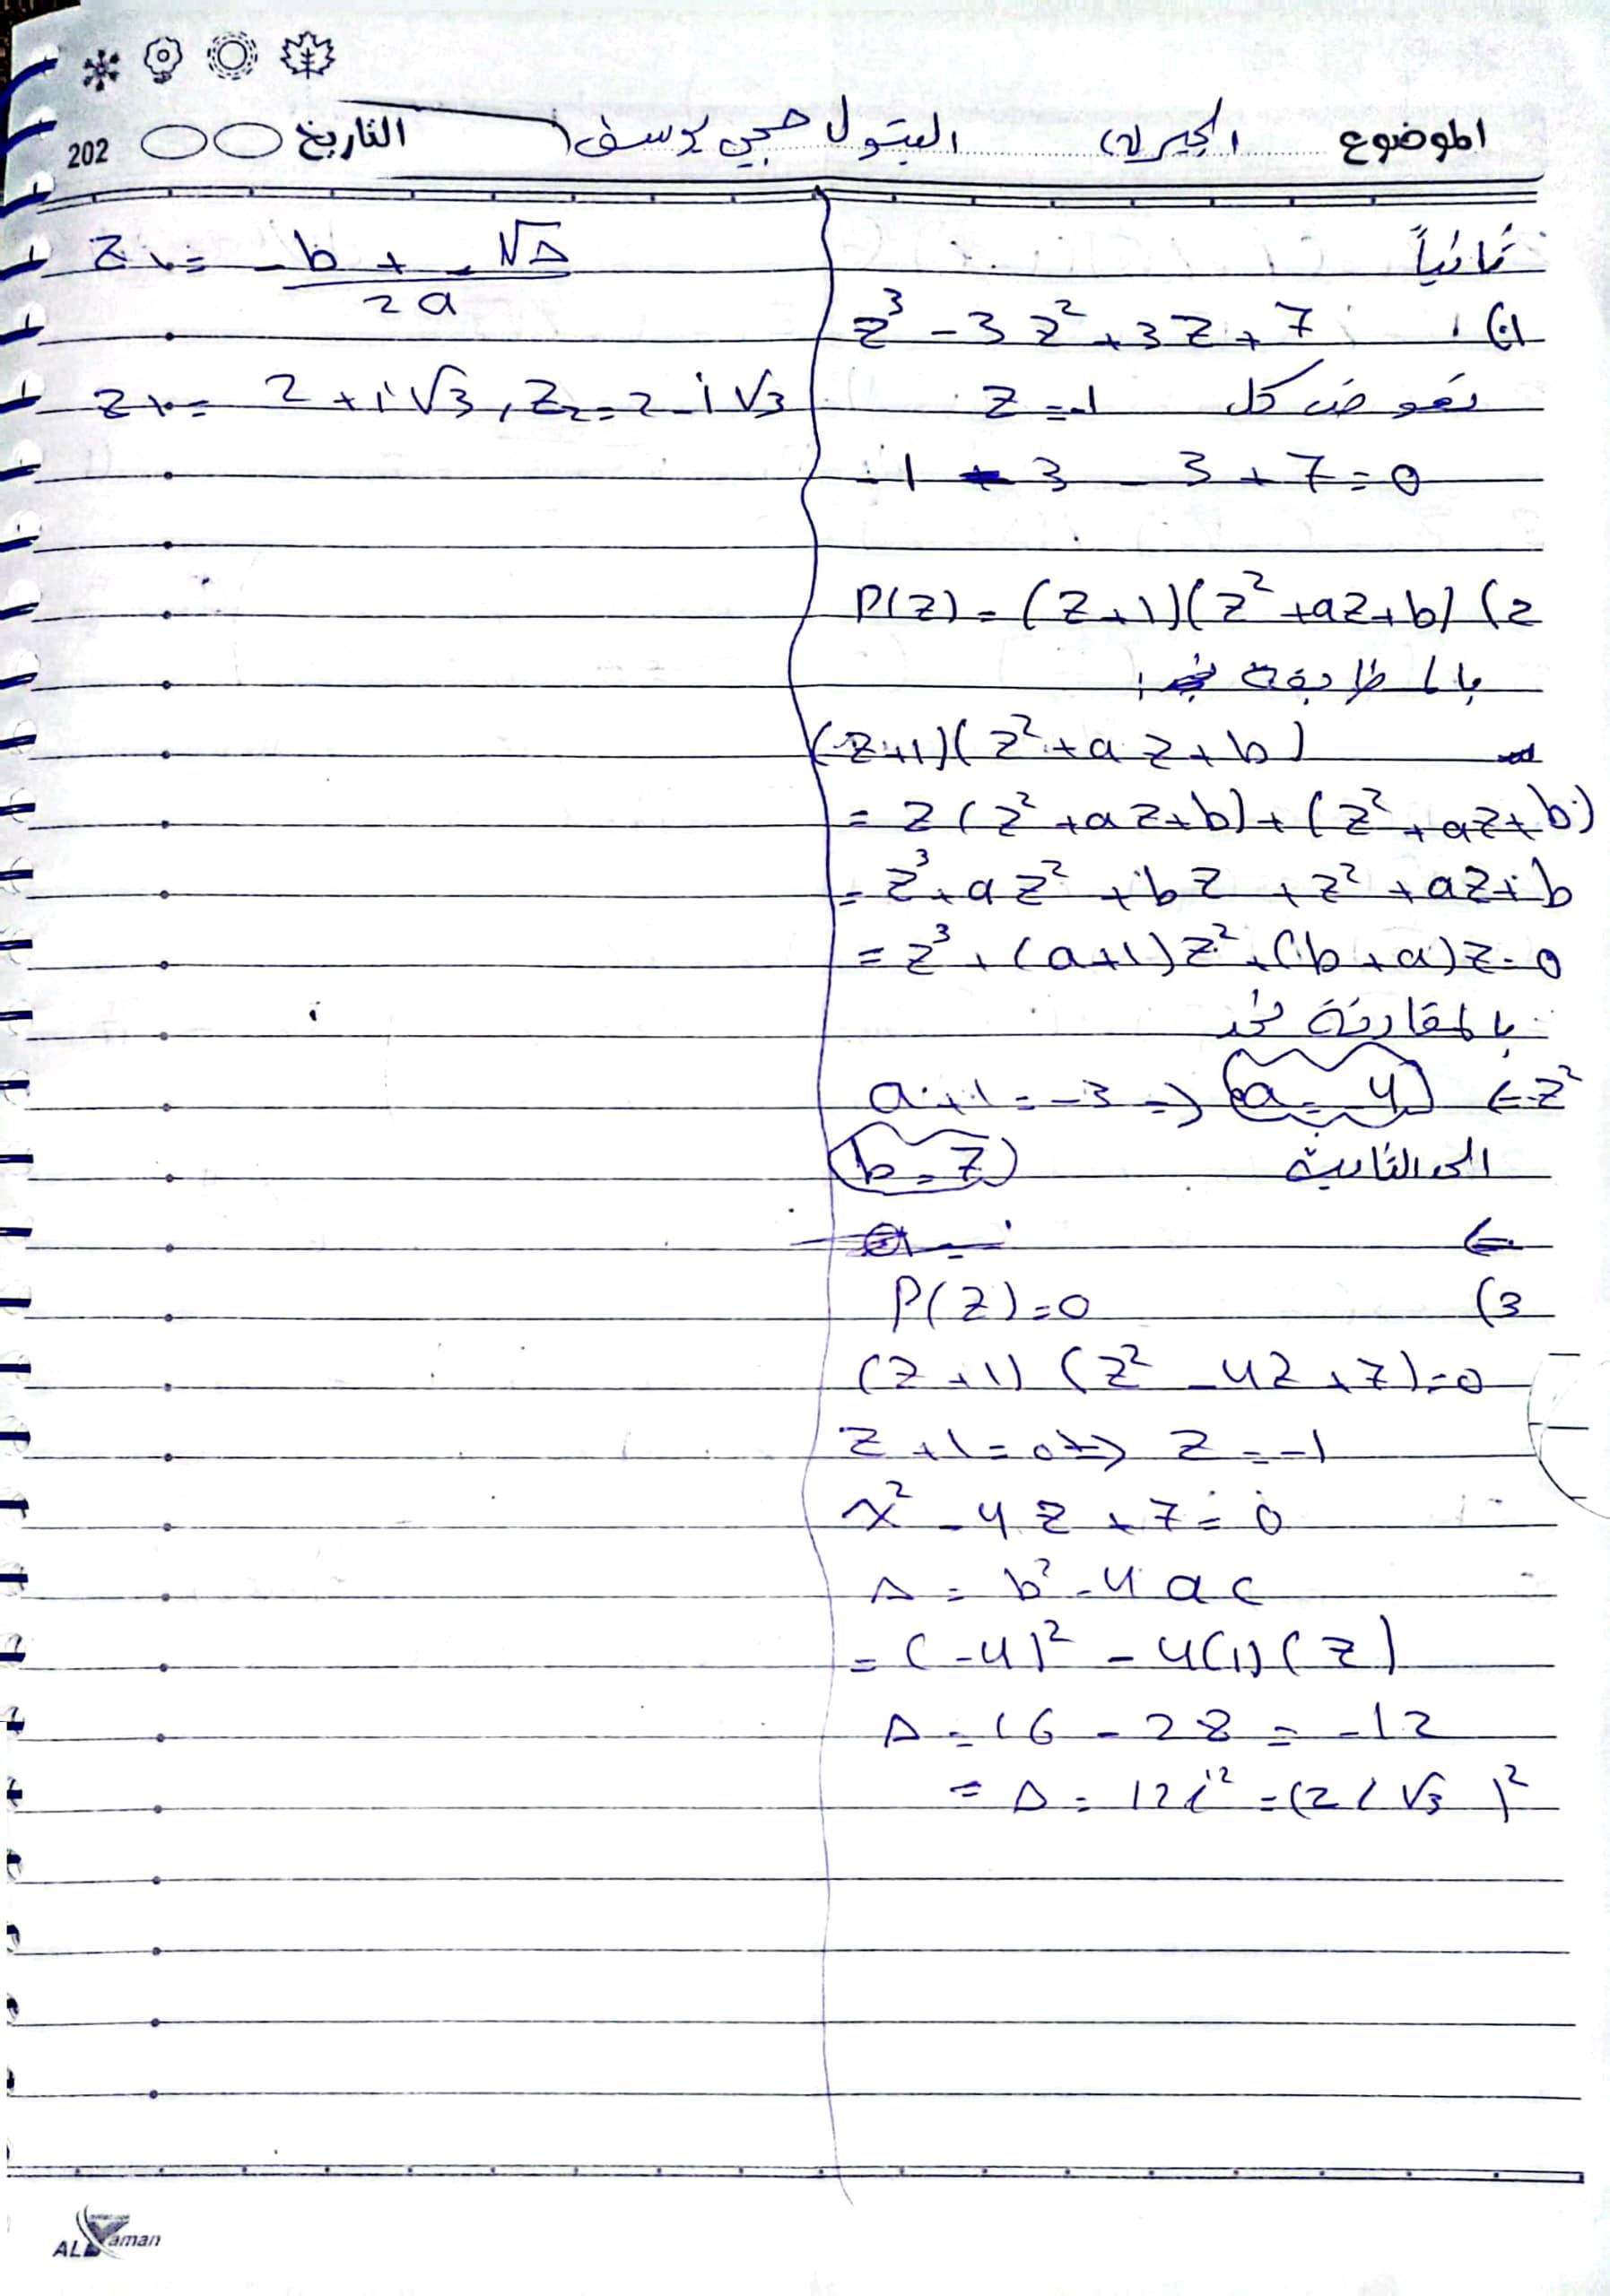 الموضوع الجبر (2) البتول حجي يوسف التاريخ 202
ثانياً
1) z³ - 3z² + 3z + 7
نعوض كل z = -1
-1 - 3 - 3 + 7 = 0
2) P(z) = (z+1)(z² + az + b)
بالمطابقة
(z+1)(z² + az + b)
= z(z² + az + b) + (z² + az + b)
= z³ + az² + bz + z² + az + b
= z³ + (a+1)z² + (b+a)z = 0
بالمقارنة نجد
z² → a + 1 = -3 ⇒ a = -4
الى الثانية b = 7
←
3) P(z) = 0
(z+1)(z² - 4z + 7) = 0
z + 1 = 0 ⇒ z = -1
x² - 4z + 7 = 0
Δ = b² - 4ac
= (-4)² - 4(1)(7)
Δ = 16 - 28 = -12
= Δ = 12i² = (2i√3)²
z₁ = -b + - √Δ / 2a
z₁ = 2 + i√3 , z₂ = 2 - i√3
AL Yaman